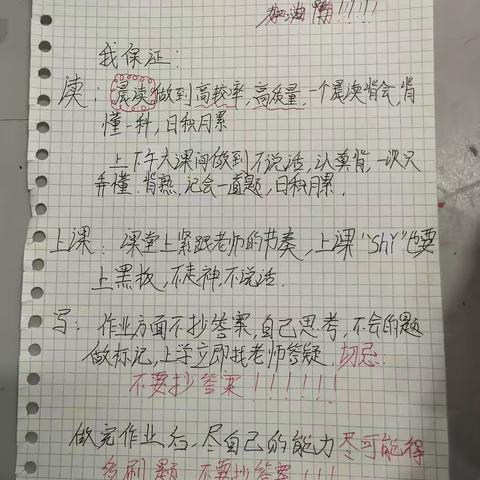 加油啊!!!!!
我保证:
读:晨读做到高效率,高质量,一个晨读背会,背
懂一科,日积月累
上下午大课间做到不说话,认真背,一次只
弄懂.背熟,记会一道题,日积月累.
上课:课堂上紧跟老师的节奏,上课"shi"也要
上黑板,不走神,不说话.
写:作业方面不抄答案,自己思考,不会的题
做标记,上学立即找老师答疑.切忌
不要抄答案!!!!!!
做完作业后,尽自己的能力尽可能得
多刷题,不要抄答案!!!